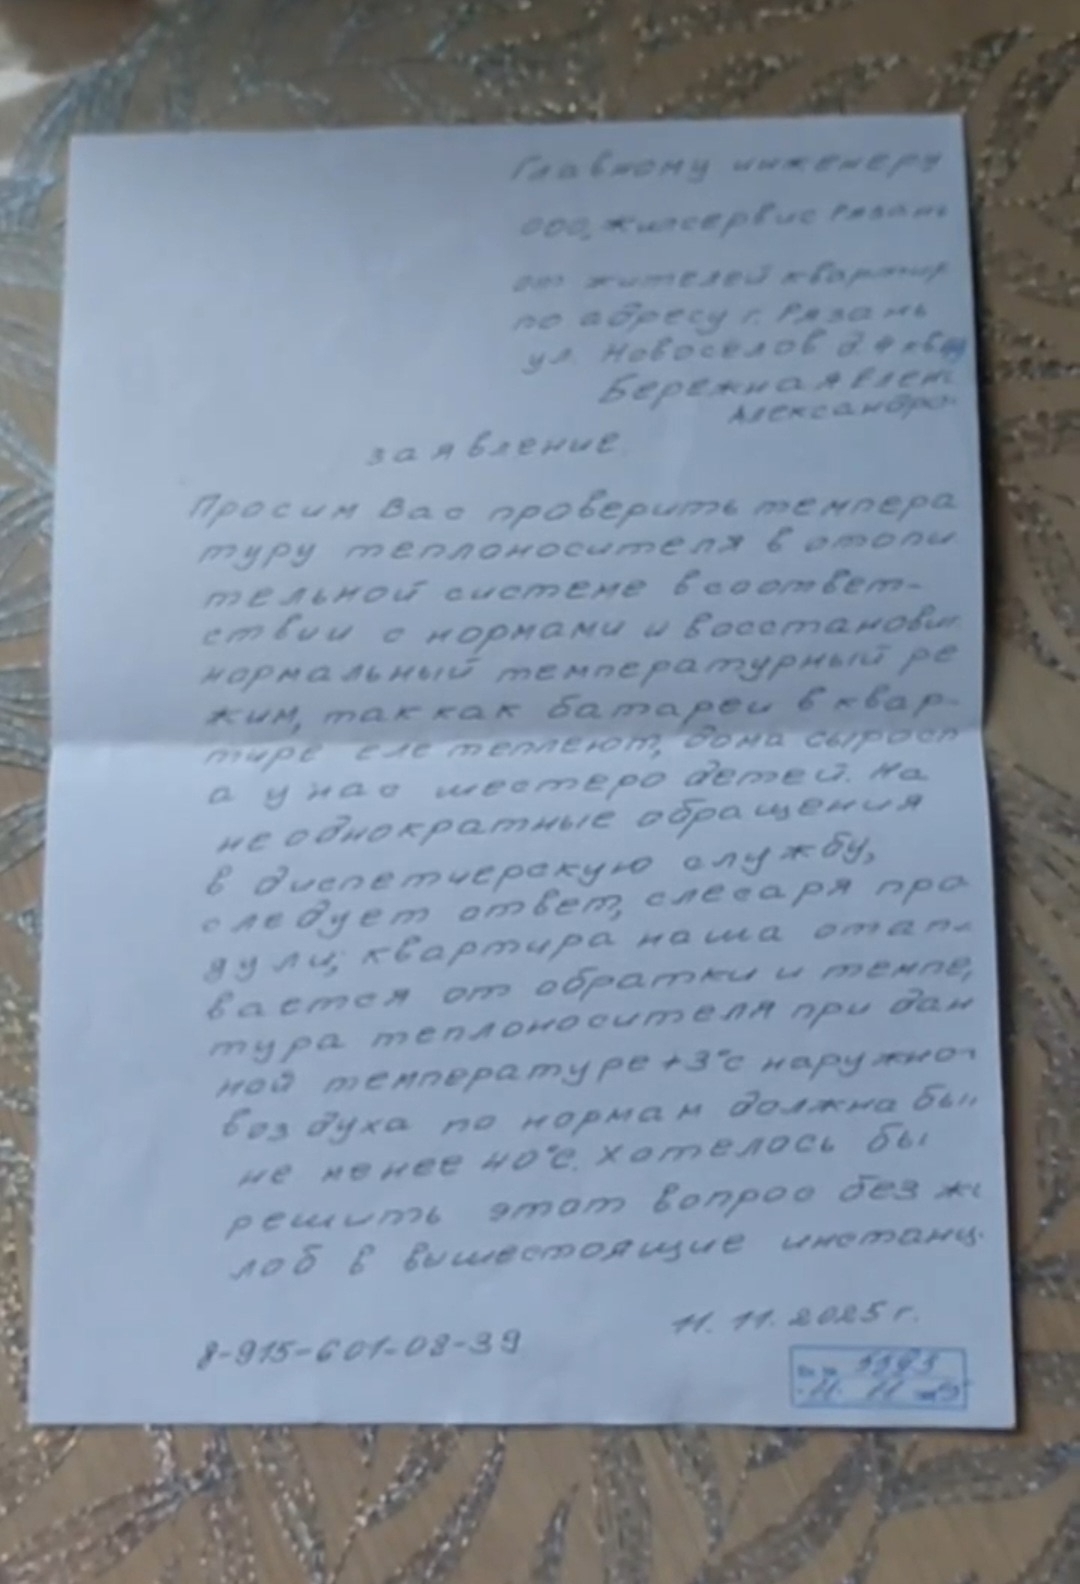 Главному инженеру
ООО "Жилсервис Рязань
от жителей квартир
по адресу г. Рязань
ул. Новоселов д. 4 кв
Бережная Елен
Александро
заявление.
Просим Вас проверить темпера
туру теплоносителя в отопи
тельной системе в соответ-
ствии с нормами и восстанови
нормальный температурный ре
жим, так как батареи в квар-
тире еле теплеют, дома сырост
а у нас шестеро детей. На
неоднократные обращения
в диспетчерскую службу,
следует ответ, слесаря про
дули, квартира наша отап
вается от обратки и темпе
тура теплоносителя при дан
ной температуре +3°С наружно
воздуха по нормам должна бы
не менее 40°С. Хотелось бы
решить этот вопрос без жа
лоб в вышестоящие инстанц
11.11.2025 г.
8-915-601-08-39
11 11